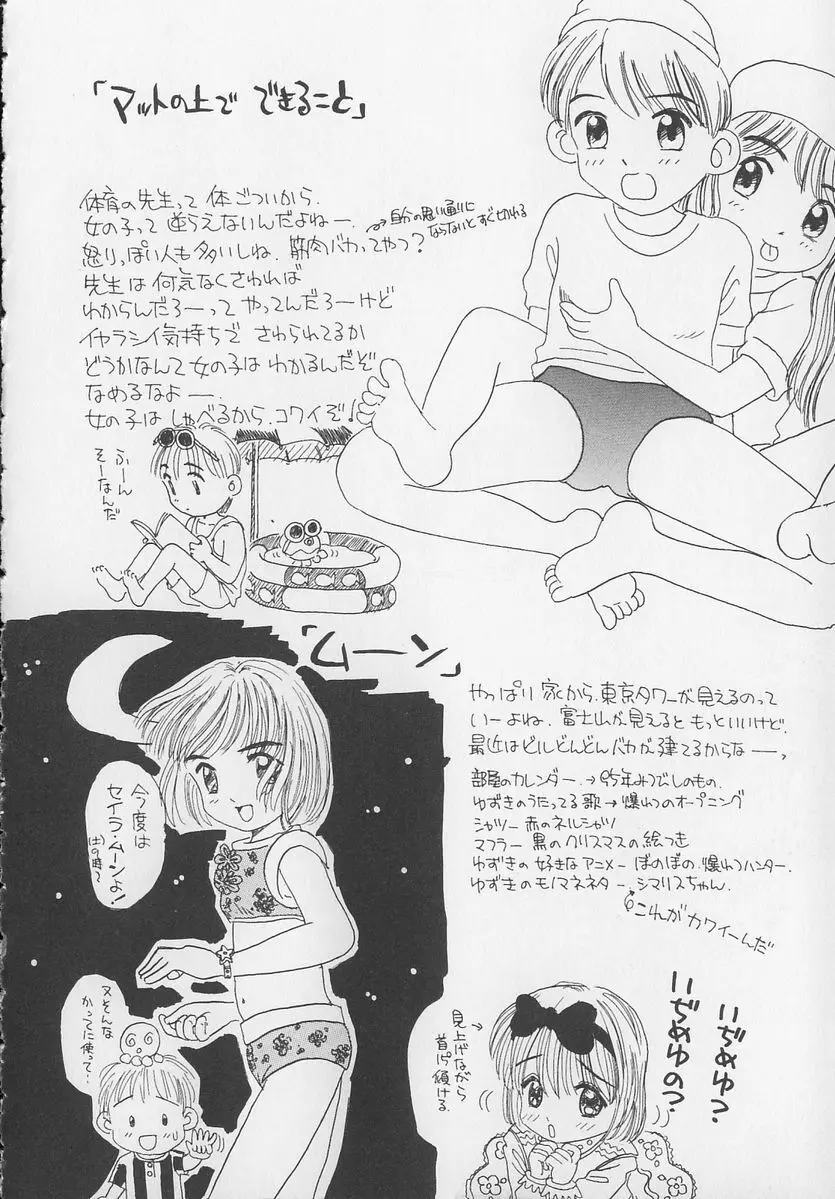 「マットの上で できること」
体育の先生って 体ごついから、
女の子って 逆らえないんだよねー、
→自分の思い通りに
ならないとすぐ切れる
怒りっぽい人も多いしね、筋肉バカってやつ?
先生は 何気なくさわれば
わからんだろーって やってんだろーけど
イヤラシイ気持ちで さわられてるか
どうかなんて女の子は わかるんだぞ
なめるなよー、
女の子は しゃべるから、コワイぞ!
ふーん
そーなんだ
「ムーン」
やっぱり 家から、東京タワーが見えるのって
いーよね、富士山が見えると もっといいけど、
最近はビルどんどんバカが建てるからなー、
部屋のカレンダー、→95年みつでしのもの、
ゆずきのうたってる歌→爆れつのオープニング
シャツー 赤のネルシャツ
マフラー 黒のクリスマスの絵つき
ゆずきの 好きな アニメー ぼのぼの、爆れつハンター、
ゆずきのモノマネネター、シマリスちゃん、
これが カワイーんだ
今度は
セイラ・ムーンよ!
又そんな
かってに使って…
見上げながら
首を傾ける
いぢめゆ?
いぢめゆの?